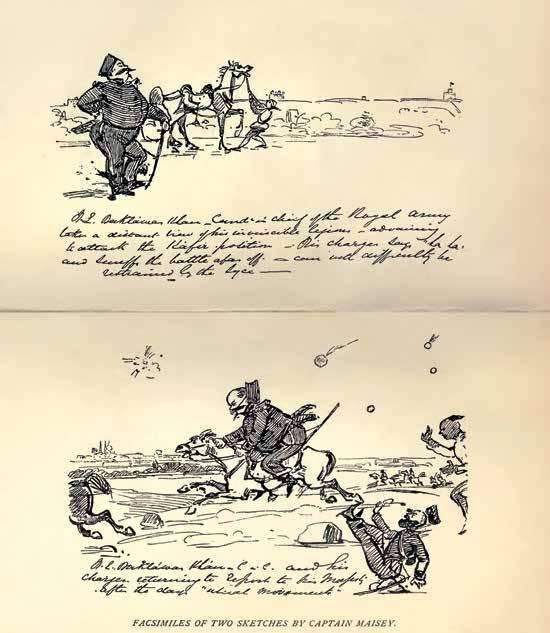 H.E. Bukhtáwar Khan – Comdr in chief of the Royal Army
takes a distant view of his invincible legions – advancing
to attack the Kafir position – His charger says "ha ha"
and snuffs the battle afar off. – can with difficulty be
restrained by the Syce –
H.E. Bukhtáwar Khan – C in C. and his
charger returning to Report to his Majesty
after the days "usual movement".
FACSIMILES OF TWO SKETCHES BY CAPTAIN MAISEY.